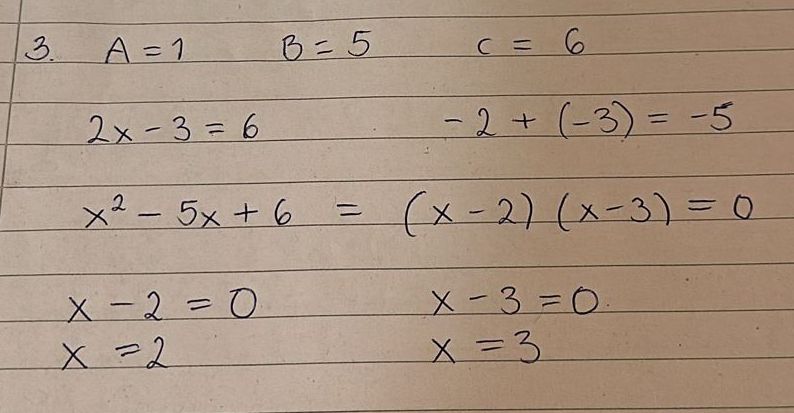 3. A = 1 B = 5 C = 6
2x - 3 = 6 -2 + (-3) = -5
x² - 5x + 6 = (x - 2) (x - 3) = 0
x - 2 = 0 x - 3 = 0.
x = 2 x = 3